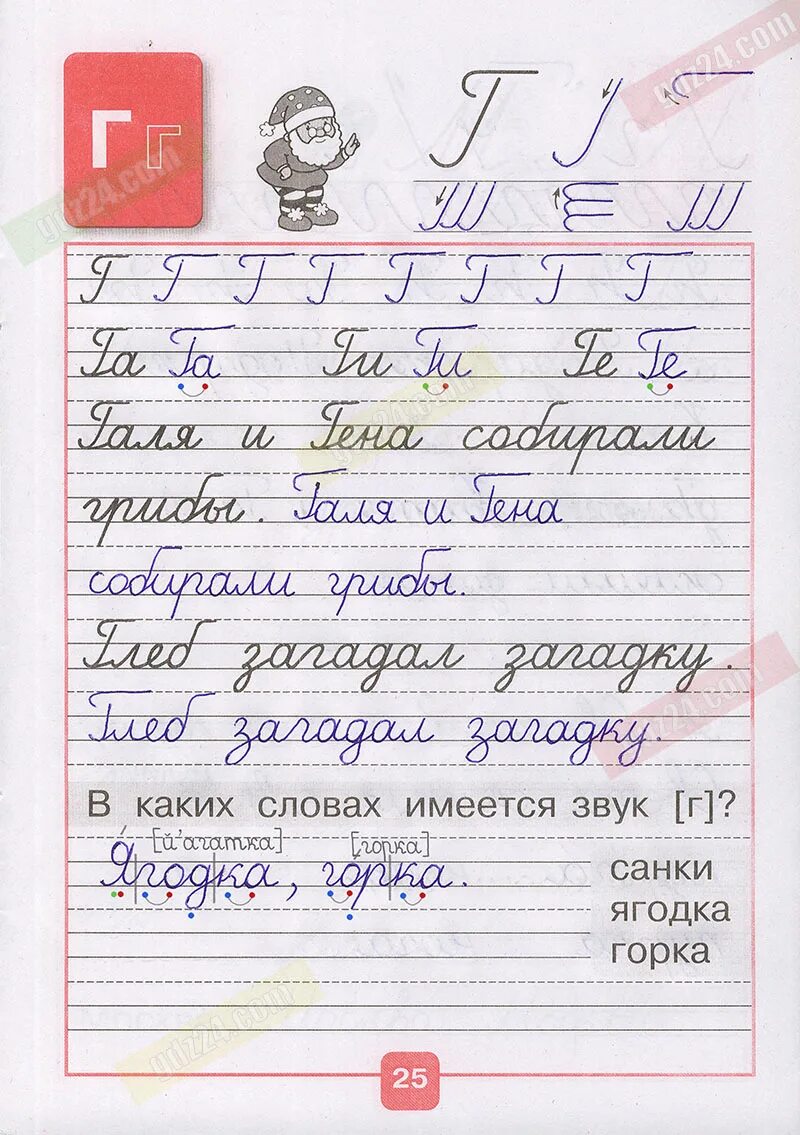 gdz24.com
Г г
Г
gdz24.com
Г Г Г Г Г Г Г Г
Га Га Ги Ги Ге Ге
Галя и Гена собирали
грибы. Галя и Гена
собирали грибы.
Глеб загадал загадку.
Глеб загадал загадку.
gdz24.com
В каких словах имеется звук [г]?
[й'агатка] [горка]
Я́годка, го́рка.
санки
ягодка
горка
gdz24.com
25